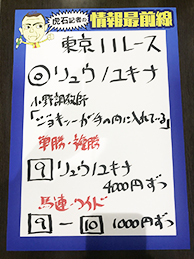 虎石記者の
情報最前線
東京11レース
◎リュウノユキナ
小野部厩
「ジョッキーが手の内に入れている」
単勝・複勝
9 リュウノユキナ
4000円ずつ
馬連・ワイド
9-10 1000円ずつ